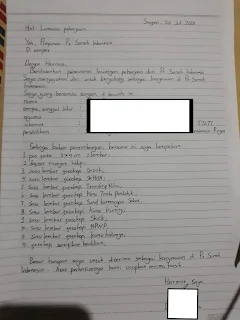 Sragen, 20 Juli 2020
Hal: Lamaran pekerjaan
Yth. Pimpinan Pt Sansh Indonesia
Di sragen
Dengan Hormat,
Berdasarkan penawaran lowongan pekerjaan dari Pt Indonesia
Saya mengajukan diri untuk bergabung sebagai karyawan di Pt
Indonesia.
Saya yang bertanda tangan di bawah ini
Nama
tempat, tanggal lahir
agama
alamat
pendidikan
Sebagai bahan pertimbangan, bersama ini saya lampirkan
1. pas photo lembar.
2. daftar riwayat hidup.
3. satu lembar fotokopi ijazah.
4. satu lembar fotokopi SKHUN.
5. satu lembar fotokopi Transkrip Nilai.
6. satu lembar fotokopi Kartu Tanda penduduk.
7. satu lembar fotokopi Surat keterangan Sehat.
8. satu lembar fotokopi Kartu Kuning.
9. satu lembar fotokopi Skck.
10. satu lembar fotokopi NPWP.
11. satu lembar fotokopi kartu keluarga.
12. fotokopi sertifikat keahlian.
Besar harapan saya untuk diterima sebagai karyawan di Pt
Indonesia. Atas perhatiannya kami ucapkan terima kasih.
Hormat Saya